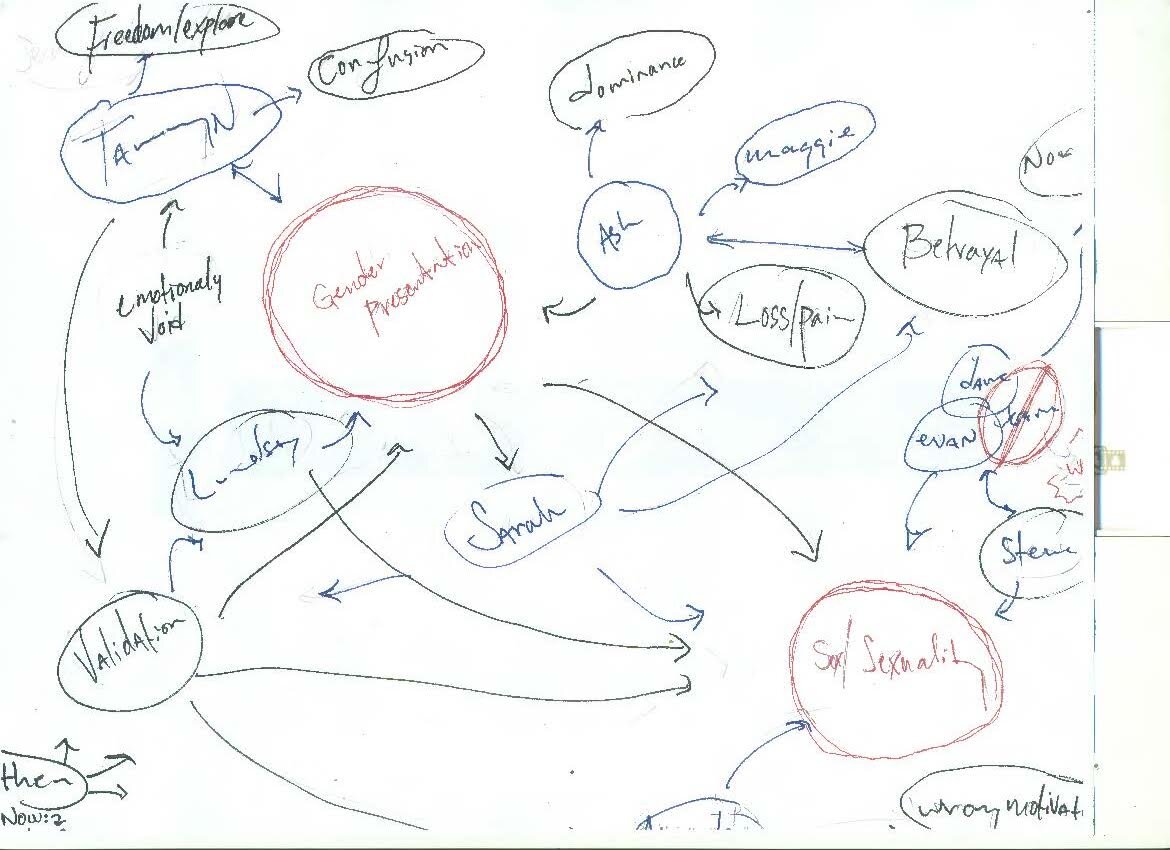 Freedom/explore
Confusion
dominance
TammyN
maggie
Ash
Betrayal
Gender
Presentation
emotionaly
void
Loss/pain
evan
Lindsay
Sarah
Steve
Validation
Sex/Sexuality
then
Now:2
wrong motivat